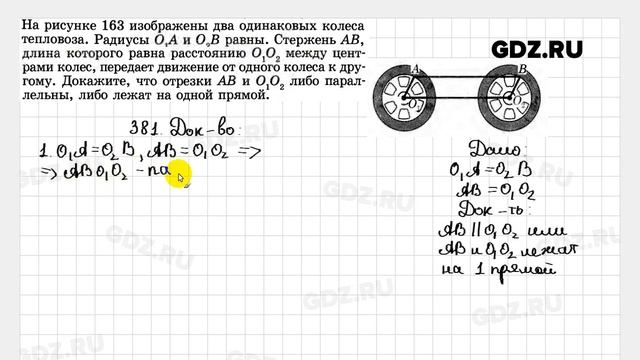 На рисунке 163 изображены два одинаковых колеса
тепловоза. Радиусы O₁A и O₂B равны. Стержень AB,
длина которого равна расстоянию O₁O₂ между цент-
рами колес, передает движение от одного колеса к дру-
гому. Докажите, что отрезки AB и O₁O₂ либо парал-
лельны, либо лежат на одной прямой.
GDZ.RU
A
B
O₁
O₂
381. Док-во:
1. O₁A = O₂B, AB = O₁O₂ =>
=> ABO₁O₂ - па
Дано:
O₁A = O₂B
AB = O₁O₂
Док-ть:
AB || O₁O₂ или
AB и O₁O₂ лежат
на 1 прямой